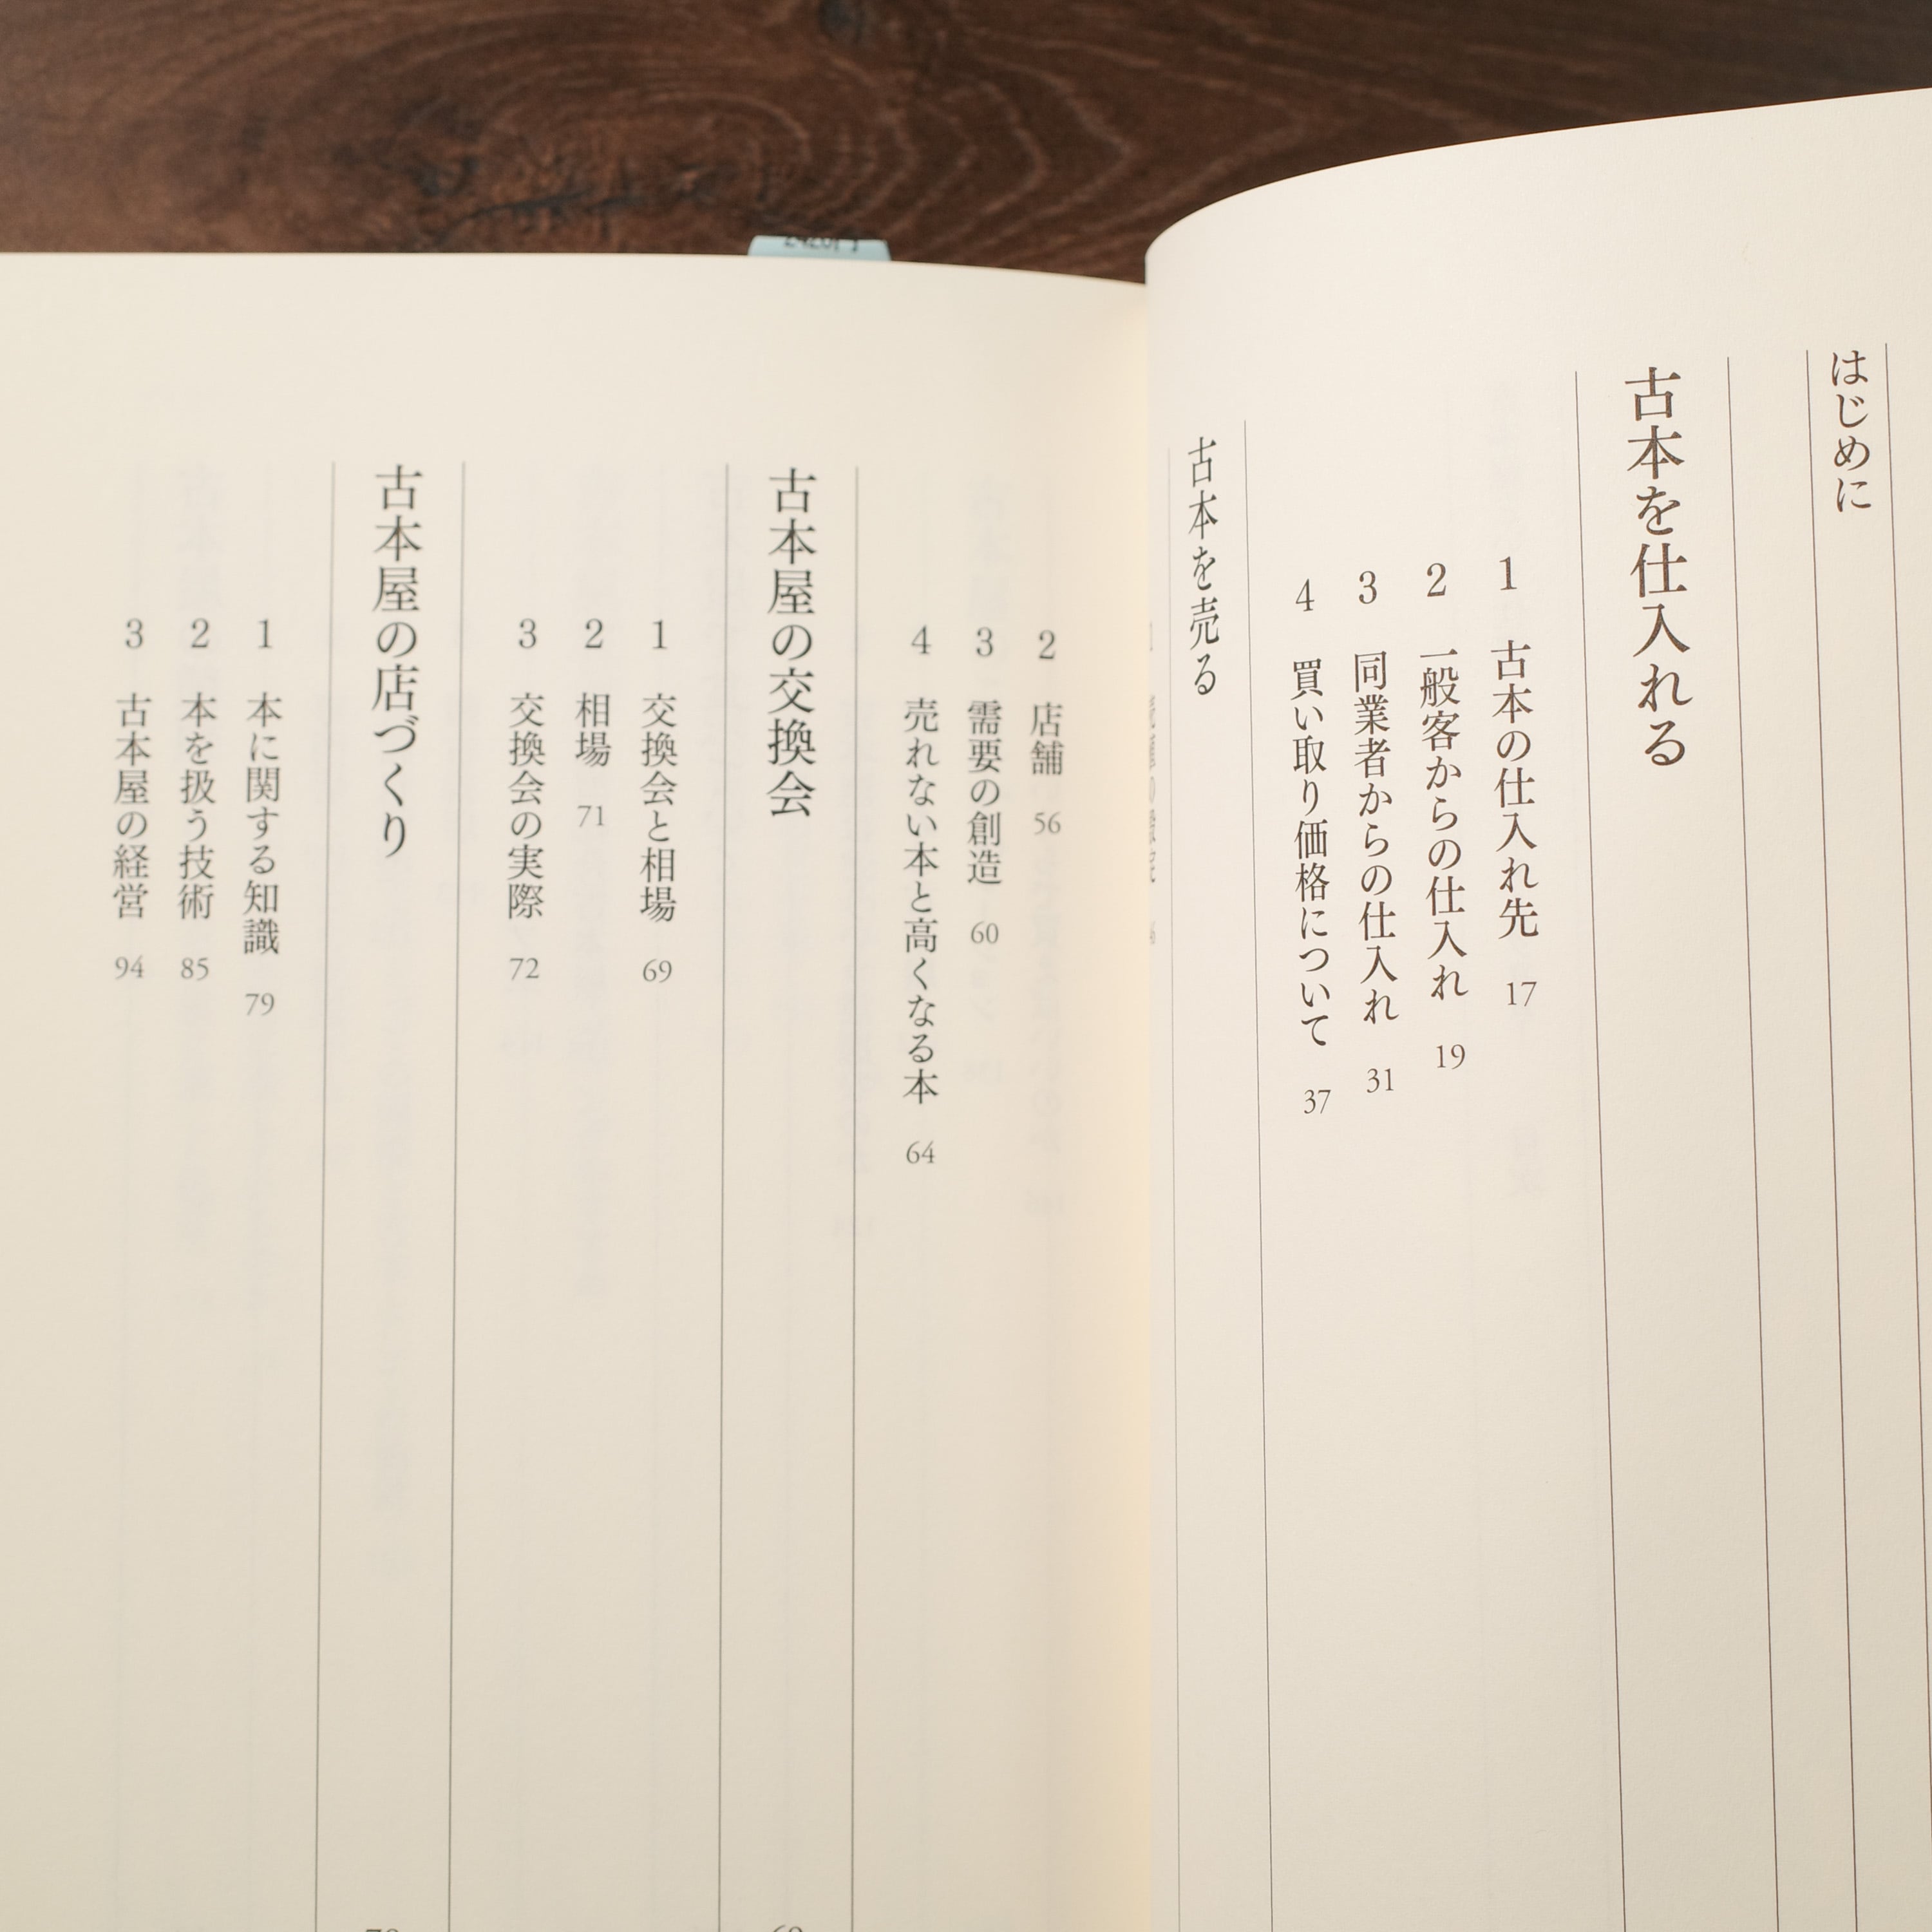 はじめに
古本を仕入れる
1 古本の仕入れ先 17
2 一般客からの仕入れ 19
3 同業者からの仕入れ 31
4 買い取り価格について 37
古本を売る
2 店舗 56
3 需要の創造 60
4 売れない本と高くなる本 64
古本屋の交換会
1 交換会と相場 69
2 相場 71
3 交換会の実際 72
古本屋の店づくり
1 本に関する知識 79
2 本を扱う技術 85
3 古本屋の経営 94